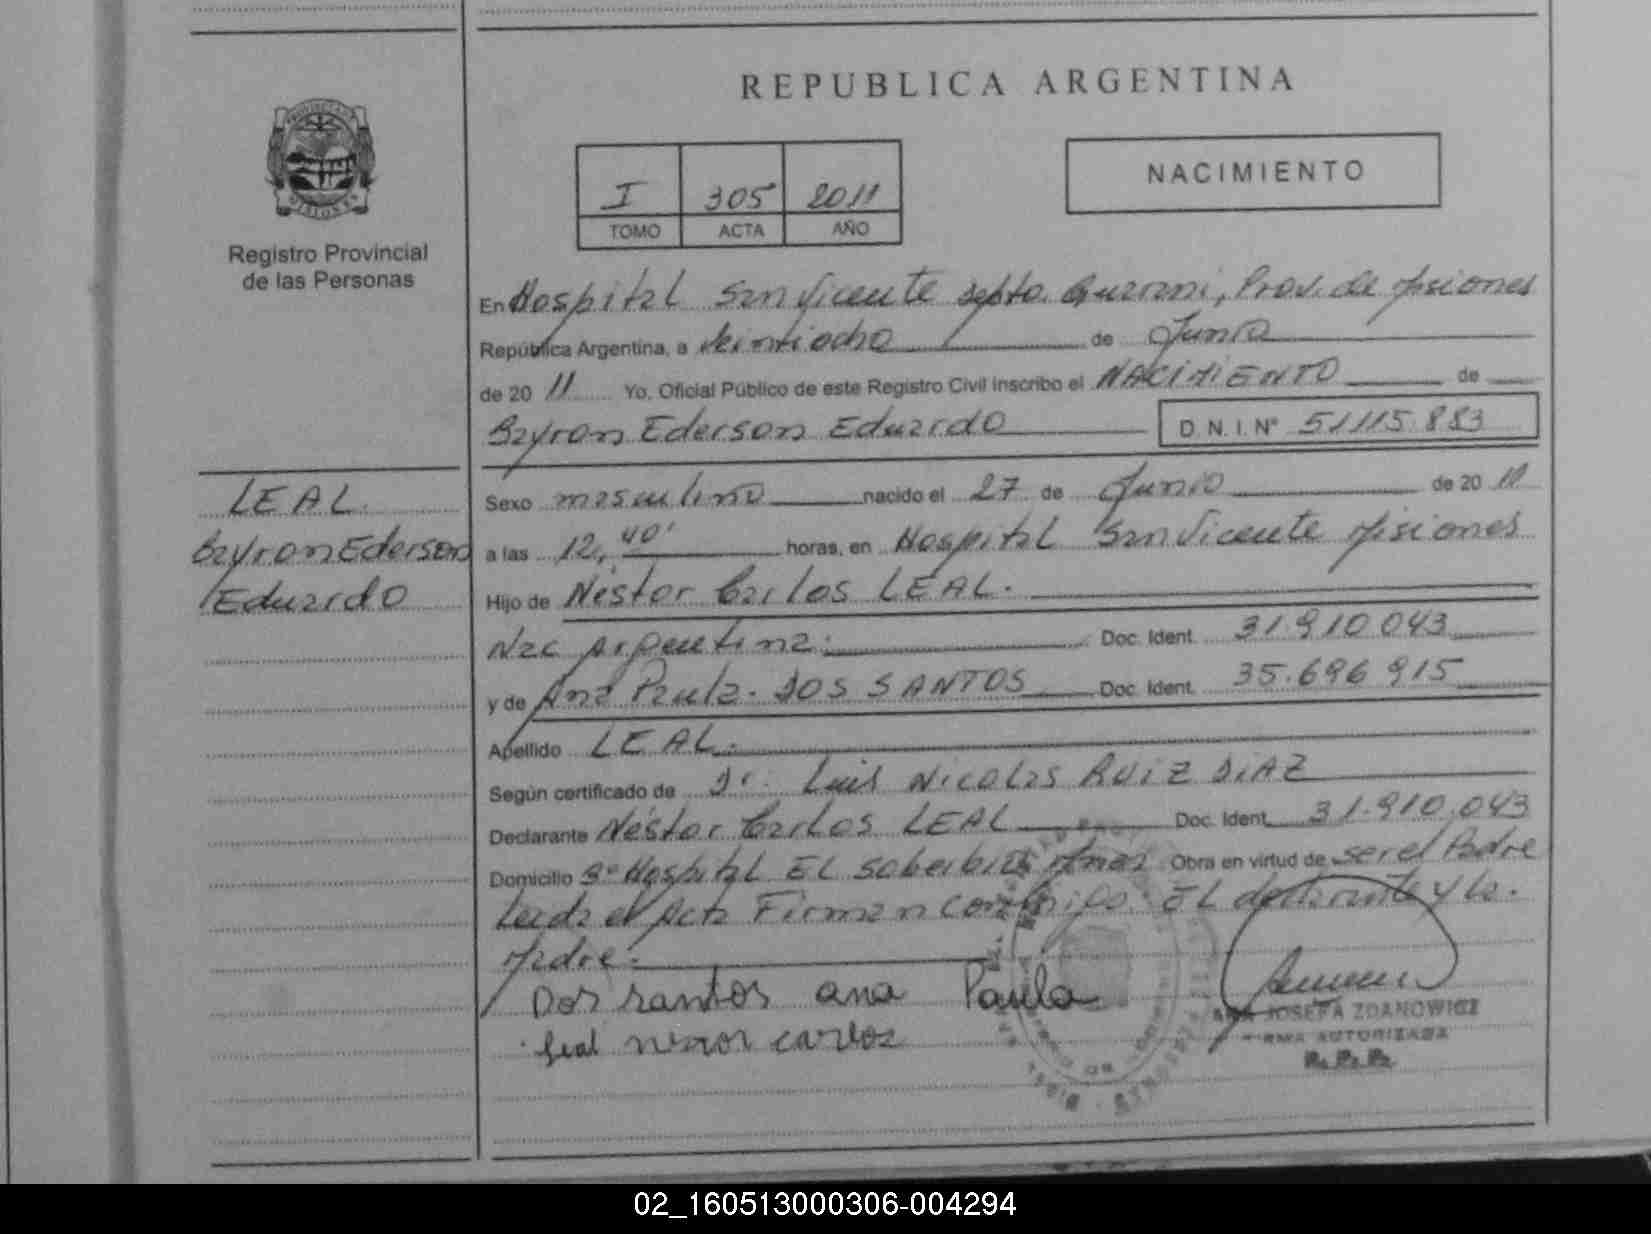 REPUBLICA ARGENTINA
PROVINCIA DE
MISIONES
Registro Provincial
de las Personas
I 305 2011
TOMO ACTA AÑO
NACIMIENTO
En Hospital San Vicente depto. Guarani, Prov. de Misiones
República Argentina, a veintiocho de Junio
de 20 11 Yo, Oficial Público de este Registro Civil inscribo el NACIMIENTO de
Byron Ederson Eduardo D.N.I. Nº 51115.883
LEAL.
Byron Ederson
Eduardo
Sexo masculino nacido el 27 de Junio de 20 11
a las 12,40' horas, en Hospital San Vicente Misiones
Hijo de Néstor Carlos LEAL.
Nac Argentina: Doc. Ident. 31.910.043
y de Ana Paula. DOS SANTOS Doc. Ident. 35.696.915
Apellido LEAL.
Según certificado de Dr. Luis Nicolas RUIZ DIAZ
Declarante Néstor Carlos LEAL Doc. Ident. 31.910.043
Domicilio Bº Hospital EL Soberbio Mnes Obra en virtud de ser el Padre
Leida el Acta Firman conmigo. EL declarante y la.
Madre.
Dos santos ana Paula
leal nestor carlos
JOSEFA ZDANOWICZ
FIRMA AUTORIZADA
R.P.P.
02_160513000306-004294